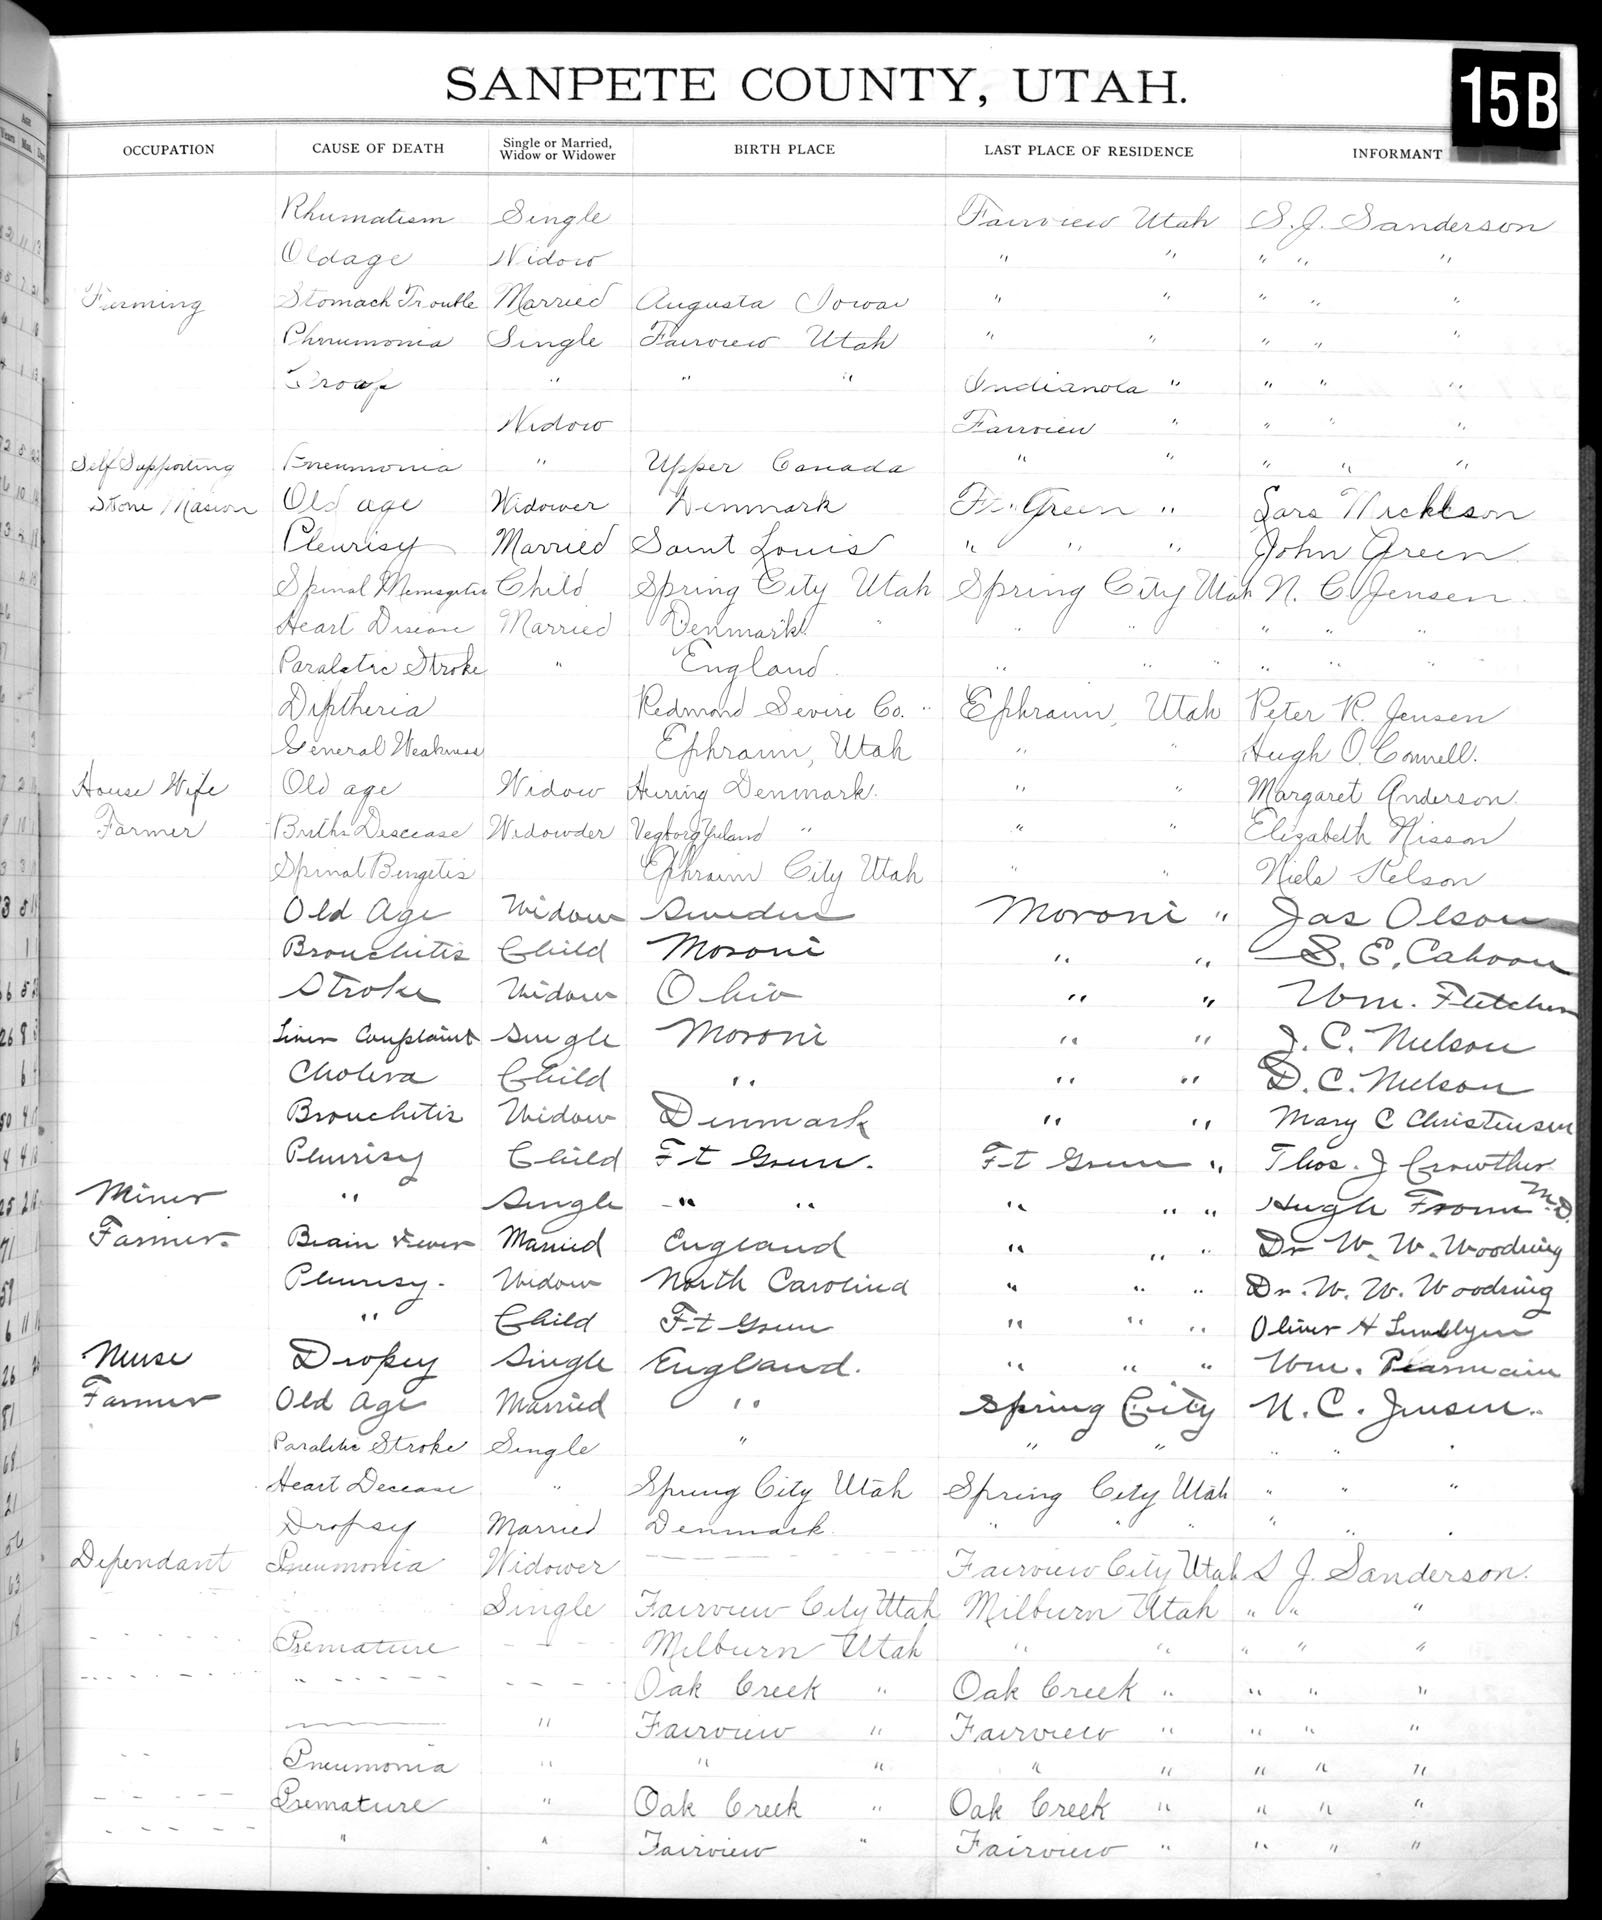 SANPETE COUNTY, UTAH.
15B
OCCUPATION CAUSE OF DEATH Single or Married, Widow or Widower BIRTH PLACE LAST PLACE OF RESIDENCE INFORMANT
Rhumatism Single Fairview Utah S. J. Sanderson
Oldage Widow " " " " "
Ferming Stomach Trouble Married Augusta Iowa " " " " "
Phnumonia Single Fairview Utah " " " " "
Croup " " " Indianola " " " "
Widow Fairview " " " "
Self Supporting Pneumonia " Upper Canada " " " " "
Stone Mason Old age Widower Denmark Ft. Green " Lars
Pleurisy Married Saint Louis " " " John Green
Spinal Child Spring City Utah Spring City Utah N. C. Jensen
Heart Disease Married Denmark " " " " " " "
Paraletic Stroke " England " " " " " "
Diptheria Redmond Sevire Co. " Ephraim, Utah Peter R. Jensen
General Weakness Ephraim, Utah " " Hugh O. Connell.
House Wife Old age Widow Denmark. " " Margaret Anderson.
Farmer Disease Widowder " " " Elizabeth Nisson
Spinal Ephraim City Utah " " Niels Nelson
Old Age Widow Sweden Moroni " Jas Olson
Bronchitis Child Moroni " " S. E. Cahoon
Stroke Widow Ohio " " Wm. Fletcher
Liver Complaint Single Moroni " " J. C. Nielson
Cholera Child " " " D. C. Nielson
Bronchitis Widow Denmark " " Mary C Christensen
Pleurisy Child Ft Green. Ft Green " Thos. J Crowther
Miner " Single " " " " " Hugh M.D.
Farmer. Brain Fever Married England " " " Dr W. W. Woodring
Pleurisy. Widow North Carolina " " " Dr. W. W. Woodring
" Child Ft Green " " " Oliver H
Nurse Dropsy Single England. " " " Wm. Pearmain
Farmer Old Age Married " Spring City N. C. Jensen.
Paralitic Stroke Single " " " " " "
Heart Decease " Spring City Utah Spring City Utah " " "
Dropsy Married Denmark. " " " " " "
Dependant Pneumonia Widower Fairview City Utah S J. Sanderson.
Single Fairview City Utah Milburn Utah " " "
Premature Milburn Utah " " " " "
" Oak Creek " Oak Creek " " " "
" Fairview " Fairview " " " "
Pneumonia " " " " " " " "
Premature " Oak Creek " Oak Creek " " " "
" " Fairview " Fairview " " " "